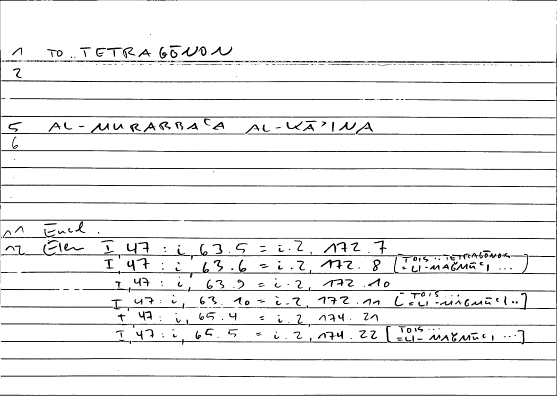 1 TO .. TETRAGŌNON
2
5 AL-MURABBAʿA AL-KĀʾINA
6
11 Eucl.
12 Elem I, 47 : i, 63.5 = i.2, 172.7
I, 47 : i, 63.6 = i.2, 172.8 [TOIS .. TETRAGŌNOIS = LI-MAǦMŪʿI ...]
I, 47 : i, 63.9 = i.2, 172.10
I, 47 : i, 63.10 = i.2, 172.11 [TOIS ... = LI-MAǦMŪʿI ..]
I, 47 : i, 65.4 = i.2, 174.21
I, 47 : i, 65.5 = i.2, 174.22 [TOIS ... = LI-MAǦMŪʿI ...]